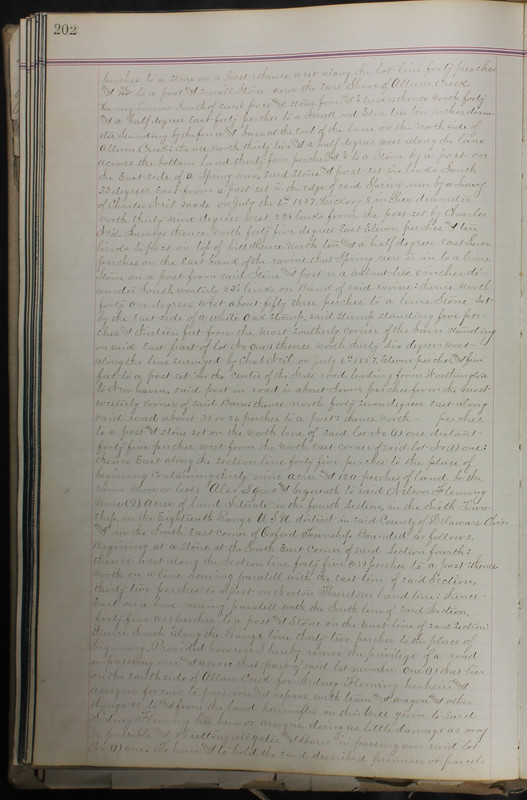 202
perches to a stone on a post: thence west along the lot line forty perches
to a post & small stone near the East Shore of Allum Creek
North forty
& a half degree East forty perches to a small
standing by the fence & lane at the end of the lane on the North side of
Allum Creek: thence North thirty two & a half degree west along the lane
across the bottom land thirty four perches to a Stone by a post on
the East side of a Spring run, said Stone & post set six links South
33 degree East from a post set in the edge of said Spring run by a Survey
of Charles Neil made on July the 6th 1887, Hickory 8 inches diameter
North thirty nine degree west 23½ links from the post set by Charles
Neils Survey: thence North forty five degree East Eleven perches & ten
links to post on top of hill: thence North ten & a half degree East Seven
perches on the East bank of the ravine that Spring run is in to a lime
Stone on a post from said Stone & post is a Wallnut tree 8 inches di-
ameter South westerly links on Bank of said ravine: thence North
forty one degrees West about fifty three perches to a lime Stone Set
by the East side of a White Oak Stump, said Stump standing five per-
ches & thirteen feet from the most Southerly corner of the barn standing
on said East part of lot No One: thence North thirty six degree west
along the line surveyed by Chas Neil on July 6th 1887, Eleven perches & five
feet to a post set in the center of the State road leading from Worthington
to New haven, said post in road is about Seven perches from the most
westerly corner of said Barn: thence North forty Seven degree East along
said road about 25 or 26 perches to a post: thence North perches
to a post & stone set on the North line of said lot No (1) one distant
forty five perches west from the North East corner of said lot No (1) one:
thence East along the section line forty five perches to the place of
beginning Containing thirty nine acres & 120 perches of land be the
same more or less. Also I give & bequeath to said Nelson Flemming
Nine (9) Acres of land Situate in the fourth Section, in the Sixth Town-
ship, in the Eighteenth Range U.S.M. district in said County of Delaware Ohio
& in the South East corner of Oxford Township Bounded as follows.
Beginning at a Stone at the South East Corner of said Section fourth:
thence west along the Section line forty five (45) perches to a post: thence
North on a line running paralell with the East line of said Section,
thirty two perches to a post on Norton Thurstons land line: thence
East on a line runing paralell with the South line of said Section,
forty five (45) perches to a post & Stone on the East line of said Section:
thence South along the Range line thirty two perches to the place of
beginning. Provided however I hereby reserve the privilege of a road
or passing over & across that part of said lot number One (1) that lies
on the South side of Allum Creek for Sidney Flemming his heirs &
assigns forever to pass over & repass with team & wagon & other
to & from the land hereinafter in this Will given to Said
Sidney Flemming his heirs or assigns doing as little damages as may
be possible & Shutting all gates & Bars in passing over said lot
No (1) one. To have & to hold the said described premises or parcels